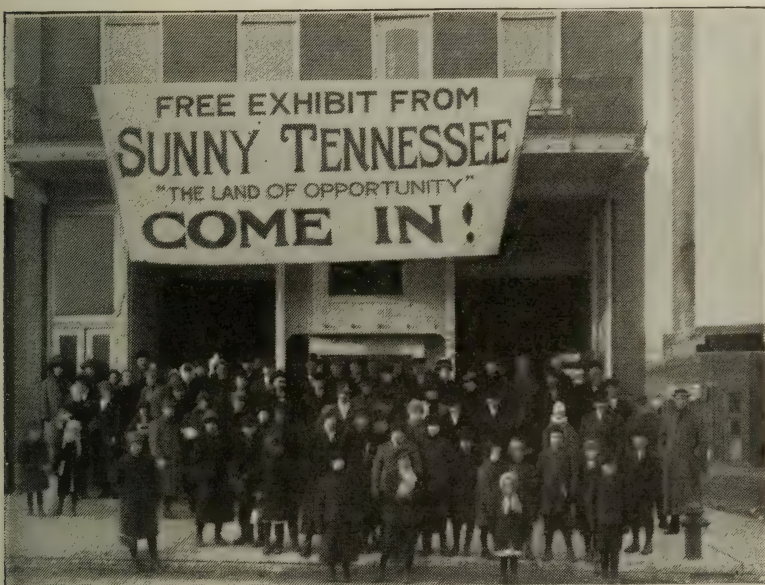 FREE EXHIBIT FROM
SUNNY TENNESSEE
"THE LAND OF OPPORTUNITY"
COME IN!